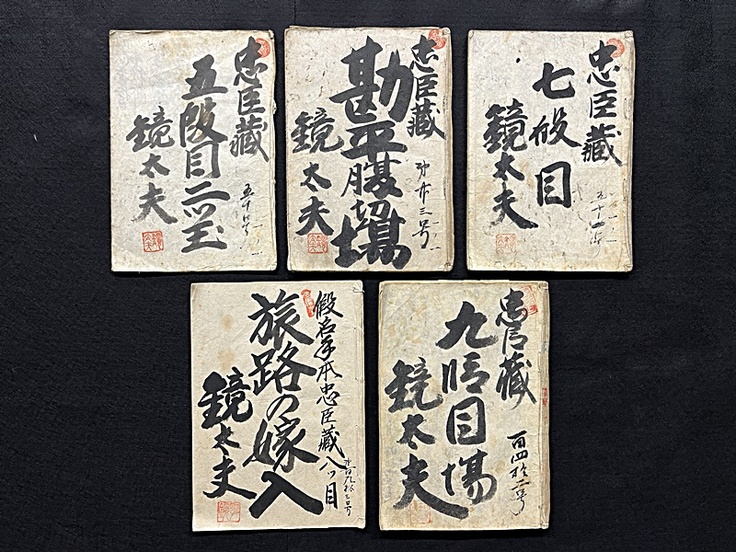 忠臣藏
五段目二ツ玉
鏡太夫
忠臣藏
勘平腹切場
鏡太夫
忠臣藏
七段目
鏡太夫
五十一号
假名手本忠臣藏八ツ目
旅路の嫁入
鏡太夫
忠臣藏
九段目場
鏡太夫
百四拾二号